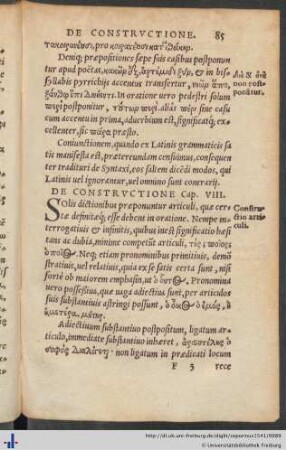 DE CONSTRVCTIONE. 85
Deniq; præpositiones sæpe suis casibus postponun
tur apud poëtas,
syllabis pyrrichijs accentus transfertur,
In oratione uero pedestri solum
postponitur, sine casu
cum accentu in prima, aduerbium est, significatq; ex-
cellenter, sic præsto.
Coniunctionem, quando ex Latinis grammaticis sa
tis manifesta est, prætereundam censuimus, consequen
ter tradituri de Syntaxi, eos saltem dicēdi modos, qui
Latinis uel ignorantur, uel omnino sunt contrarij.
DE CONSTRVCTIONE Cap. VIII.
Solis dictionibus præponuntur articuli, quæ cer-
tæ definitæq; esse debent in oratione. Nempe in-
terrogatiuis & infinitis, quibus inest significatio hæsi
tans ac dubia, minime competūt articuli, τίς, ποῖος
Neq; etiam pronominibus primitiuis, demō
stratiuis, uel relatiuis, quia ex se satis certa sunt, nisi
fortè ob maiorem emphasin, ut Pronomina
uero possessiua, quæ uaga adiectiua sunt, per articulos
suis substantiuis astringi possunt,
Adiectiuum substantiuo postpositum, ligatum ar-
ticulo, immediate substantiuo inhæret,
non ligatum in prædicati locum
F 3 rece
non post-
ponūtur.
Constru-
ctio arti-
culi.
http://dl.ub.uni-freiburg.de/diglit/ceporinus1541/0089
© Universitätsbibliothek Freiburg